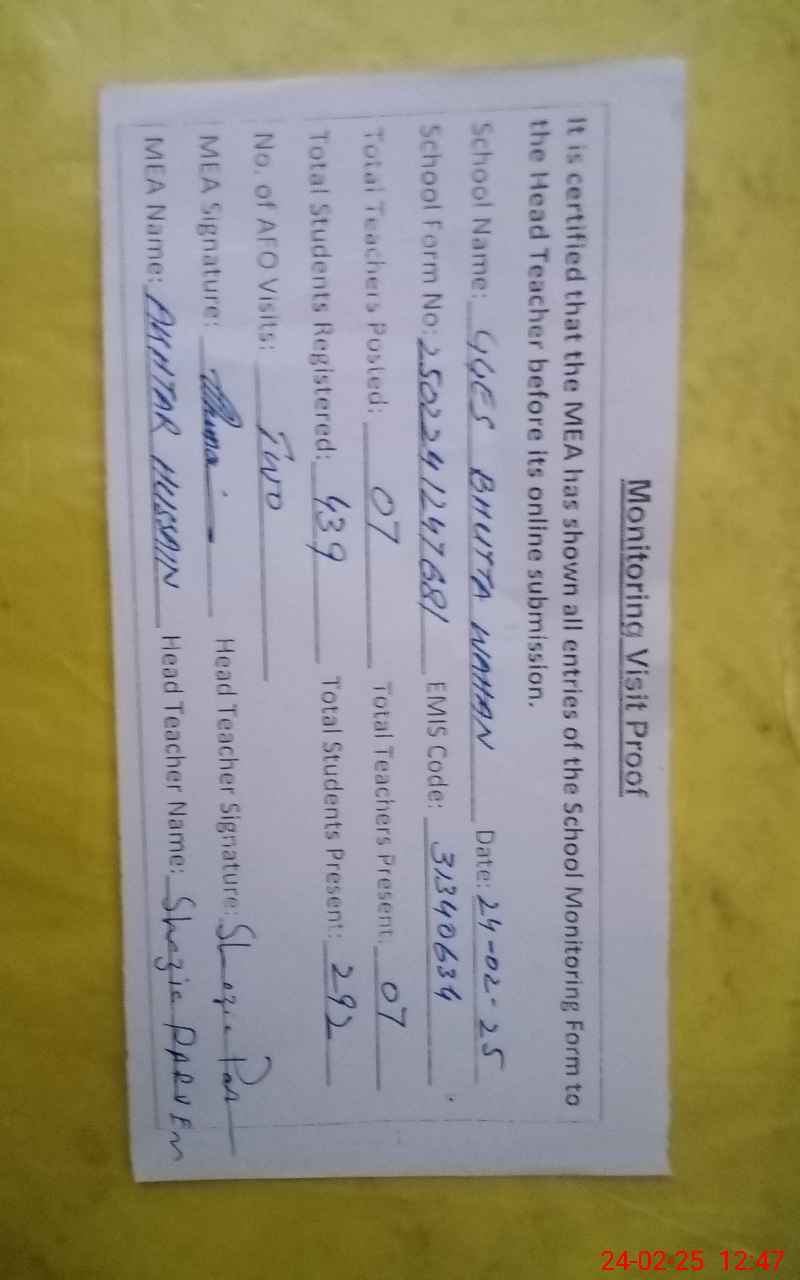 Monitoring Visit Proof
It is certified that the MEA has shown all entries of the School Monitoring Form to
the Head Teacher before its online submission.
School Name: GGES BHUTTA WAHAN Date: 24-02-25
School Form No: 2502241247681 EMIS Code: 31340634
Total Teachers Posted: 07 Total Teachers Present: 07
Total Students Registered: 439 Total Students Present: 292
No. of AFO Visits: TWO
MEA Signature: Head Teacher Signature: Shazia Par
MEA Name: AKHTAR HUSSAIN Head Teacher Name: Shazia PARVEN
24-02-25 12:47